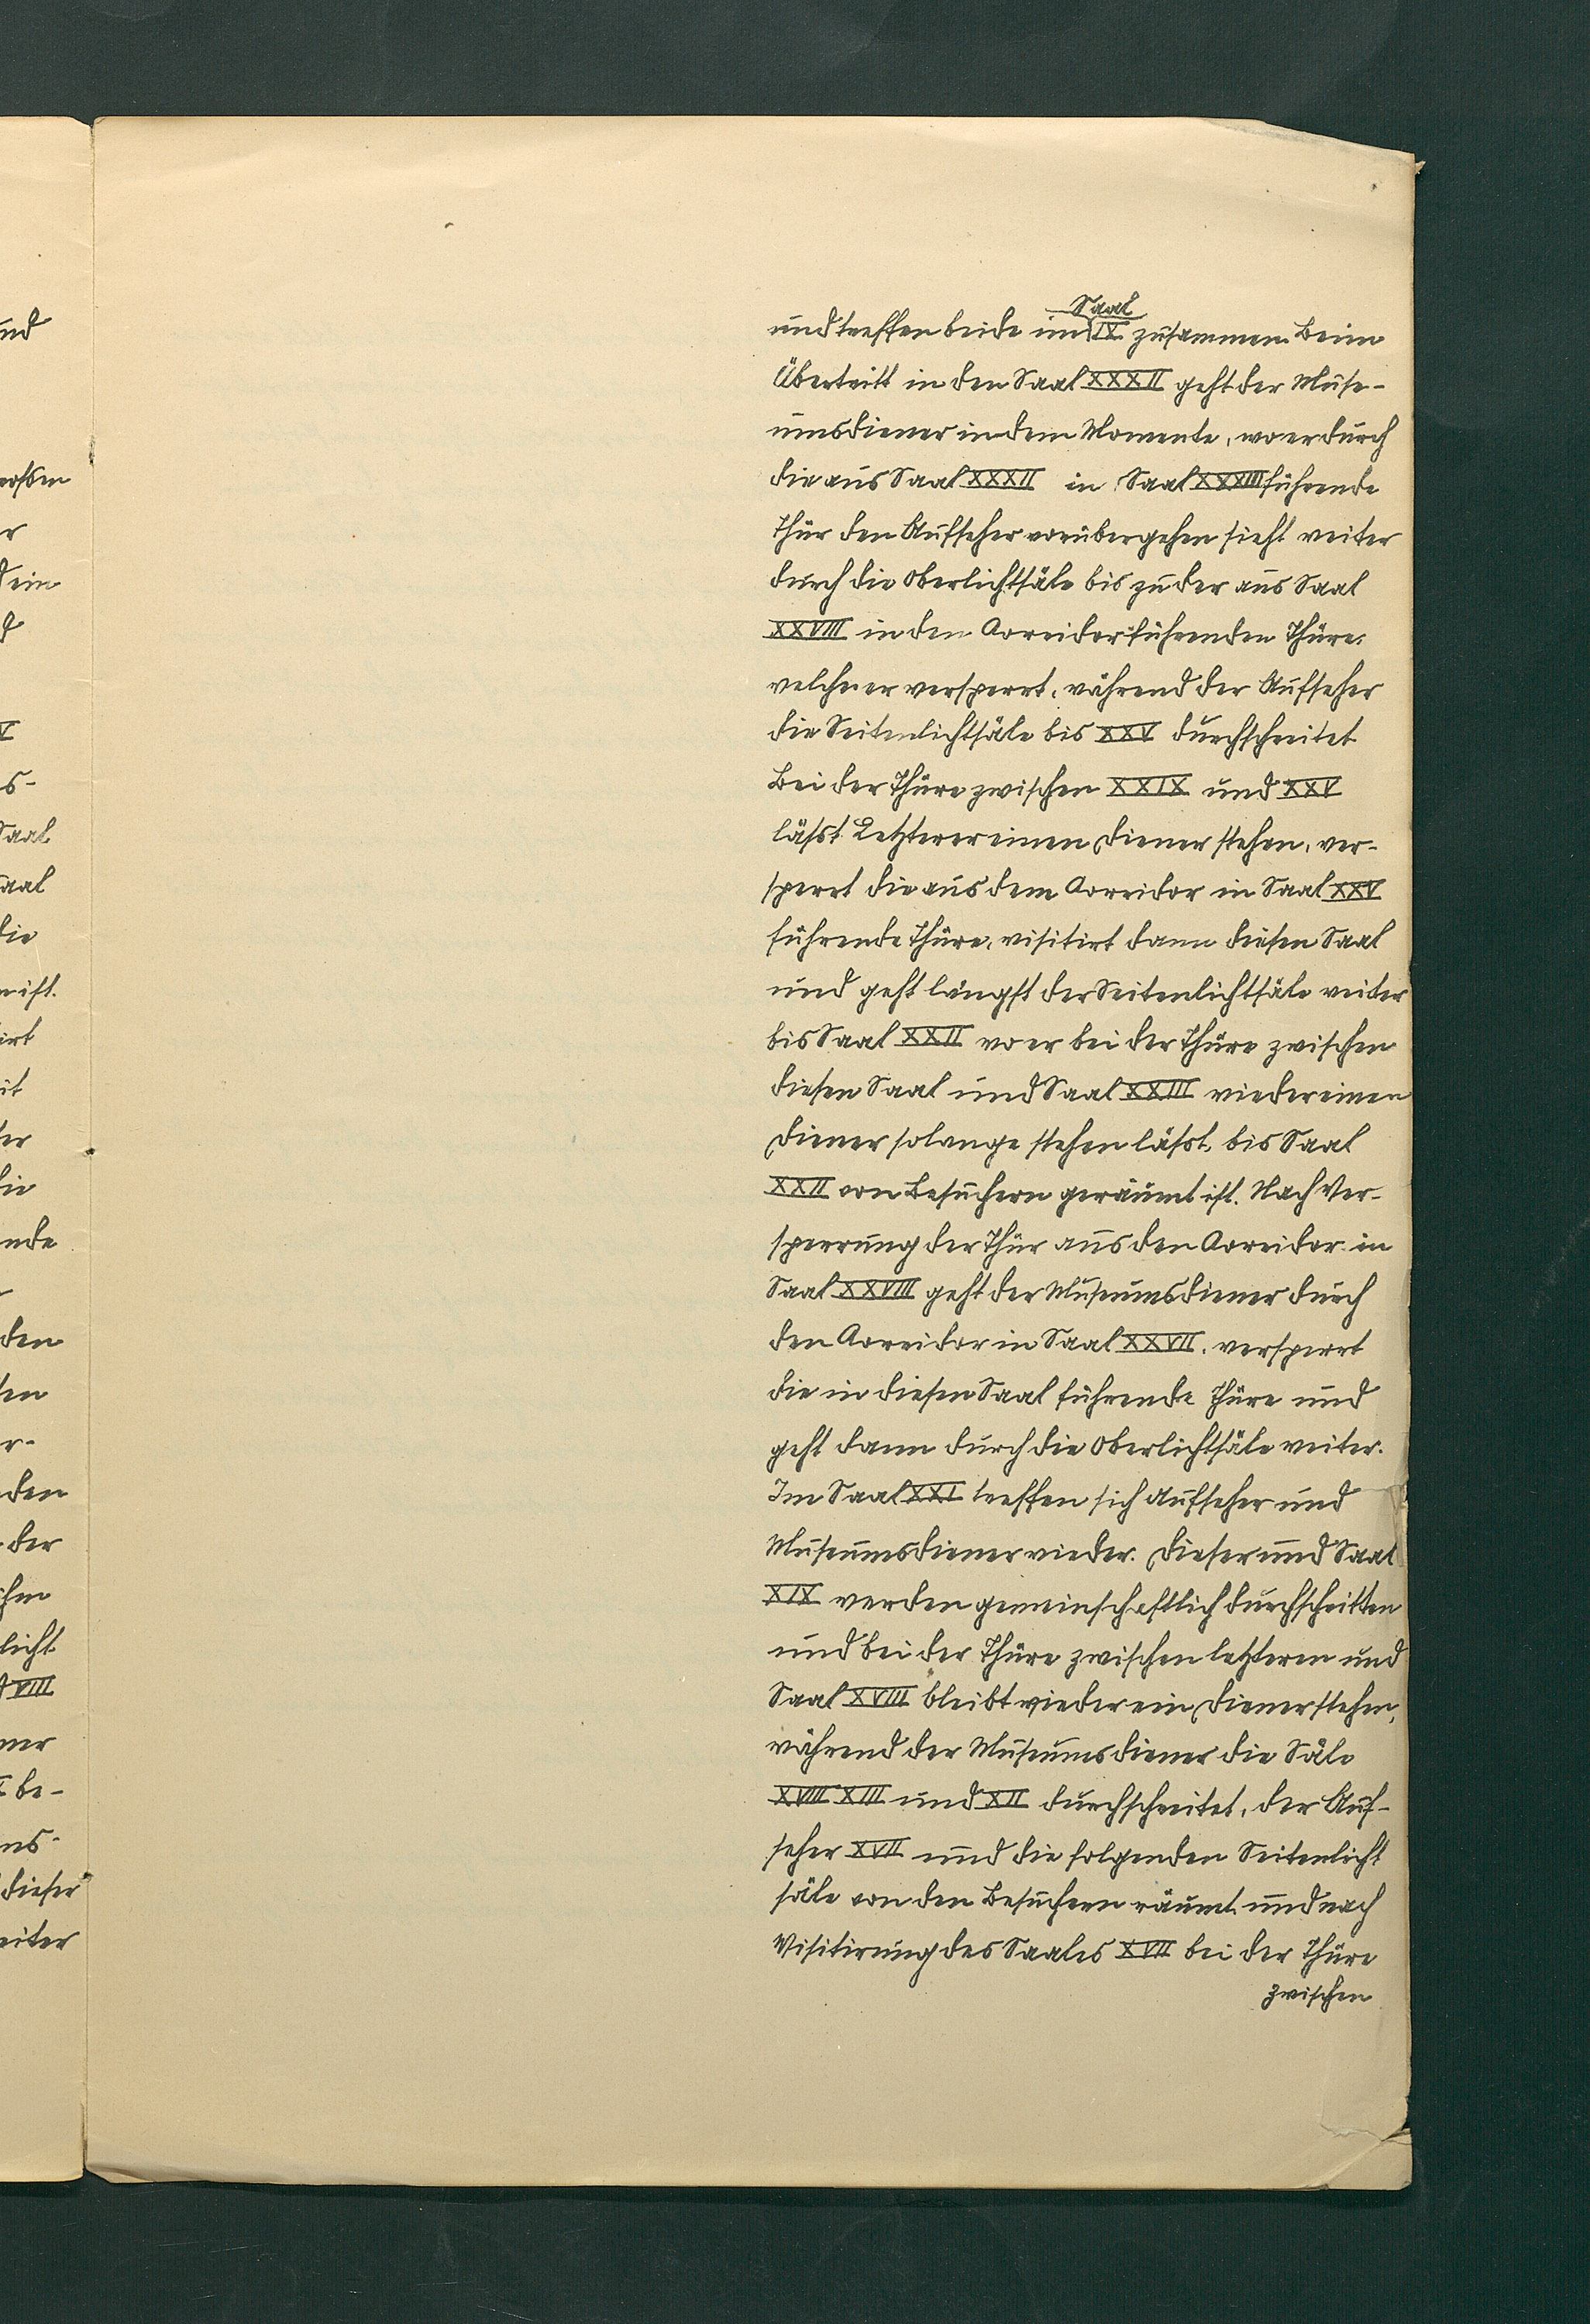 und
roßen
r
ein
d
V
s-
Saal
aal
die
ist.
irt
it
er
die
nde
den
ten
r-
den
der
ihm
licht
VIII
ner
be-
ns-
dieser
eiter
Saal
und treffen beide im IX zusammen. Beim
Übertritt in den Saal XXXII geht der Muse-
umsdiener in dem Momente, wo er durch
die aus Saal XXXII in Saal XXXIII führende
Thür den Aufseher vorübergehen sieht weiter
durch die Oberlichtsäle bis zu der aus Saal
XXVIII in den Corridor führenden Thüre,
welche er versperrt, während der Aufseher
die Seitenlichtsäle bis XXV durchschreitet.
Bei der Thüre zwischen XXIX und XXV
läßt Letzterer einen Diener stehen, ver-
sperrt die aus dem Corridor in Saal XXV
führende Thüre, visitirt dann diesen Saal
und geht längst der Seitenlichtsäle weiter
bis Saal XXII wo er bei der Thüre zwischen
diesen Saal und Saal XXIII wieder einen
Diener solange stehen läßt, bis Saal
XXII von Besuchern geräumt ist. Nach Ver-
sperrung der Thür aus den Corridor in
Saal XXVIII geht der Museumsdiener durch
den Corridor in Saal XXVII, versperrt
die in diesen Saal führende Thüre und
geht dann durch die Oberlichtsäle weiter.
Im Saal XXI treffen sich Aufseher und
Museumsdiener wieder. Dieser und Saal
XIX werden gemeinschaftlich durchschritten
und bei der Thüre zwischen letzteren und
Saal XVIII bleibt wieder ein Diener stehen,
während der Museumsdiener die Säle
XVIII XIII und XII durchschreitet, der Auf-
seher XVII und die folgenden Seitenlicht
säle von den Besuchern räumt und nach
Visitirung des Saales XVII bei der Thüre
zwischen